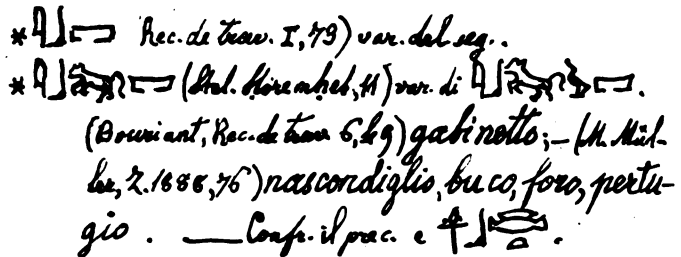 * 𓇋𓃀𓉐 Rec. de trav. I, 79) var. del seg..
* (Stel. Ḥoremḥeb, 11) var. di .
(Bouriant, Rec. de trav 6, 49) gabinetto; — (M. Mül-
ler, Z. 1888, 76) nascondiglio, buco, foro, pertu-
gio. — Confr. il prec. e .